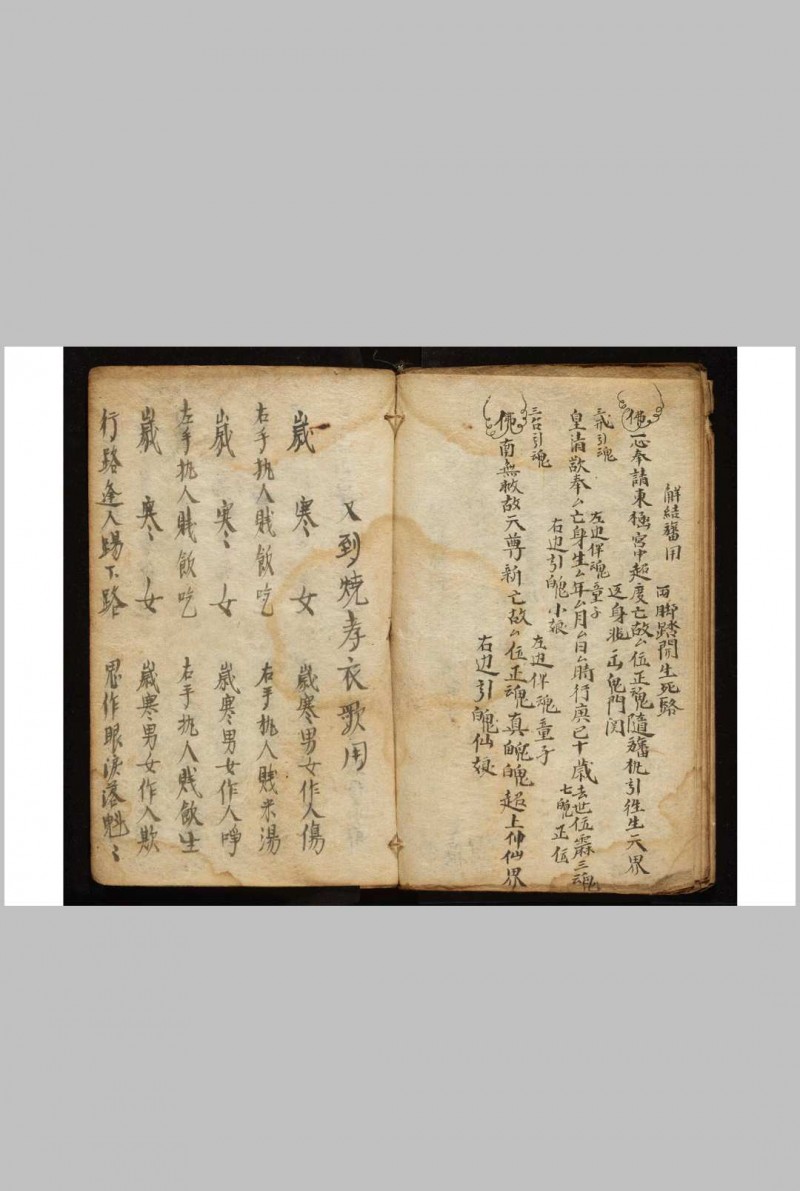 解結旛用
両脚踏開生死路
返身跳出鬼門関
一心奉請東極宮中起度亡故ム位正魂隨旛執引徃生天界
引魂
左边伴魂童子
右边引魄小娘
皇清歆奉ム亡身生ム年ム月ム日ム時行庚已十歳去世位霊三魂
七魄正位
三召引魂
左边伴魂童子
右边引魄仙娘
南無救故天尊新亡故ム位正魂真魄魄超上仲仙界
又到燒孝衣歌用
歲寒女 歲寒男女作人傷
右手执人賎飯吃 右手执人賎米湯
歲寒女 歲寒男女作人啼
左手执人賎飯吃 右手执人賎飲生
歲寒女 歲寒男女作人欺
行路逢人踢下路 思作眼淚落